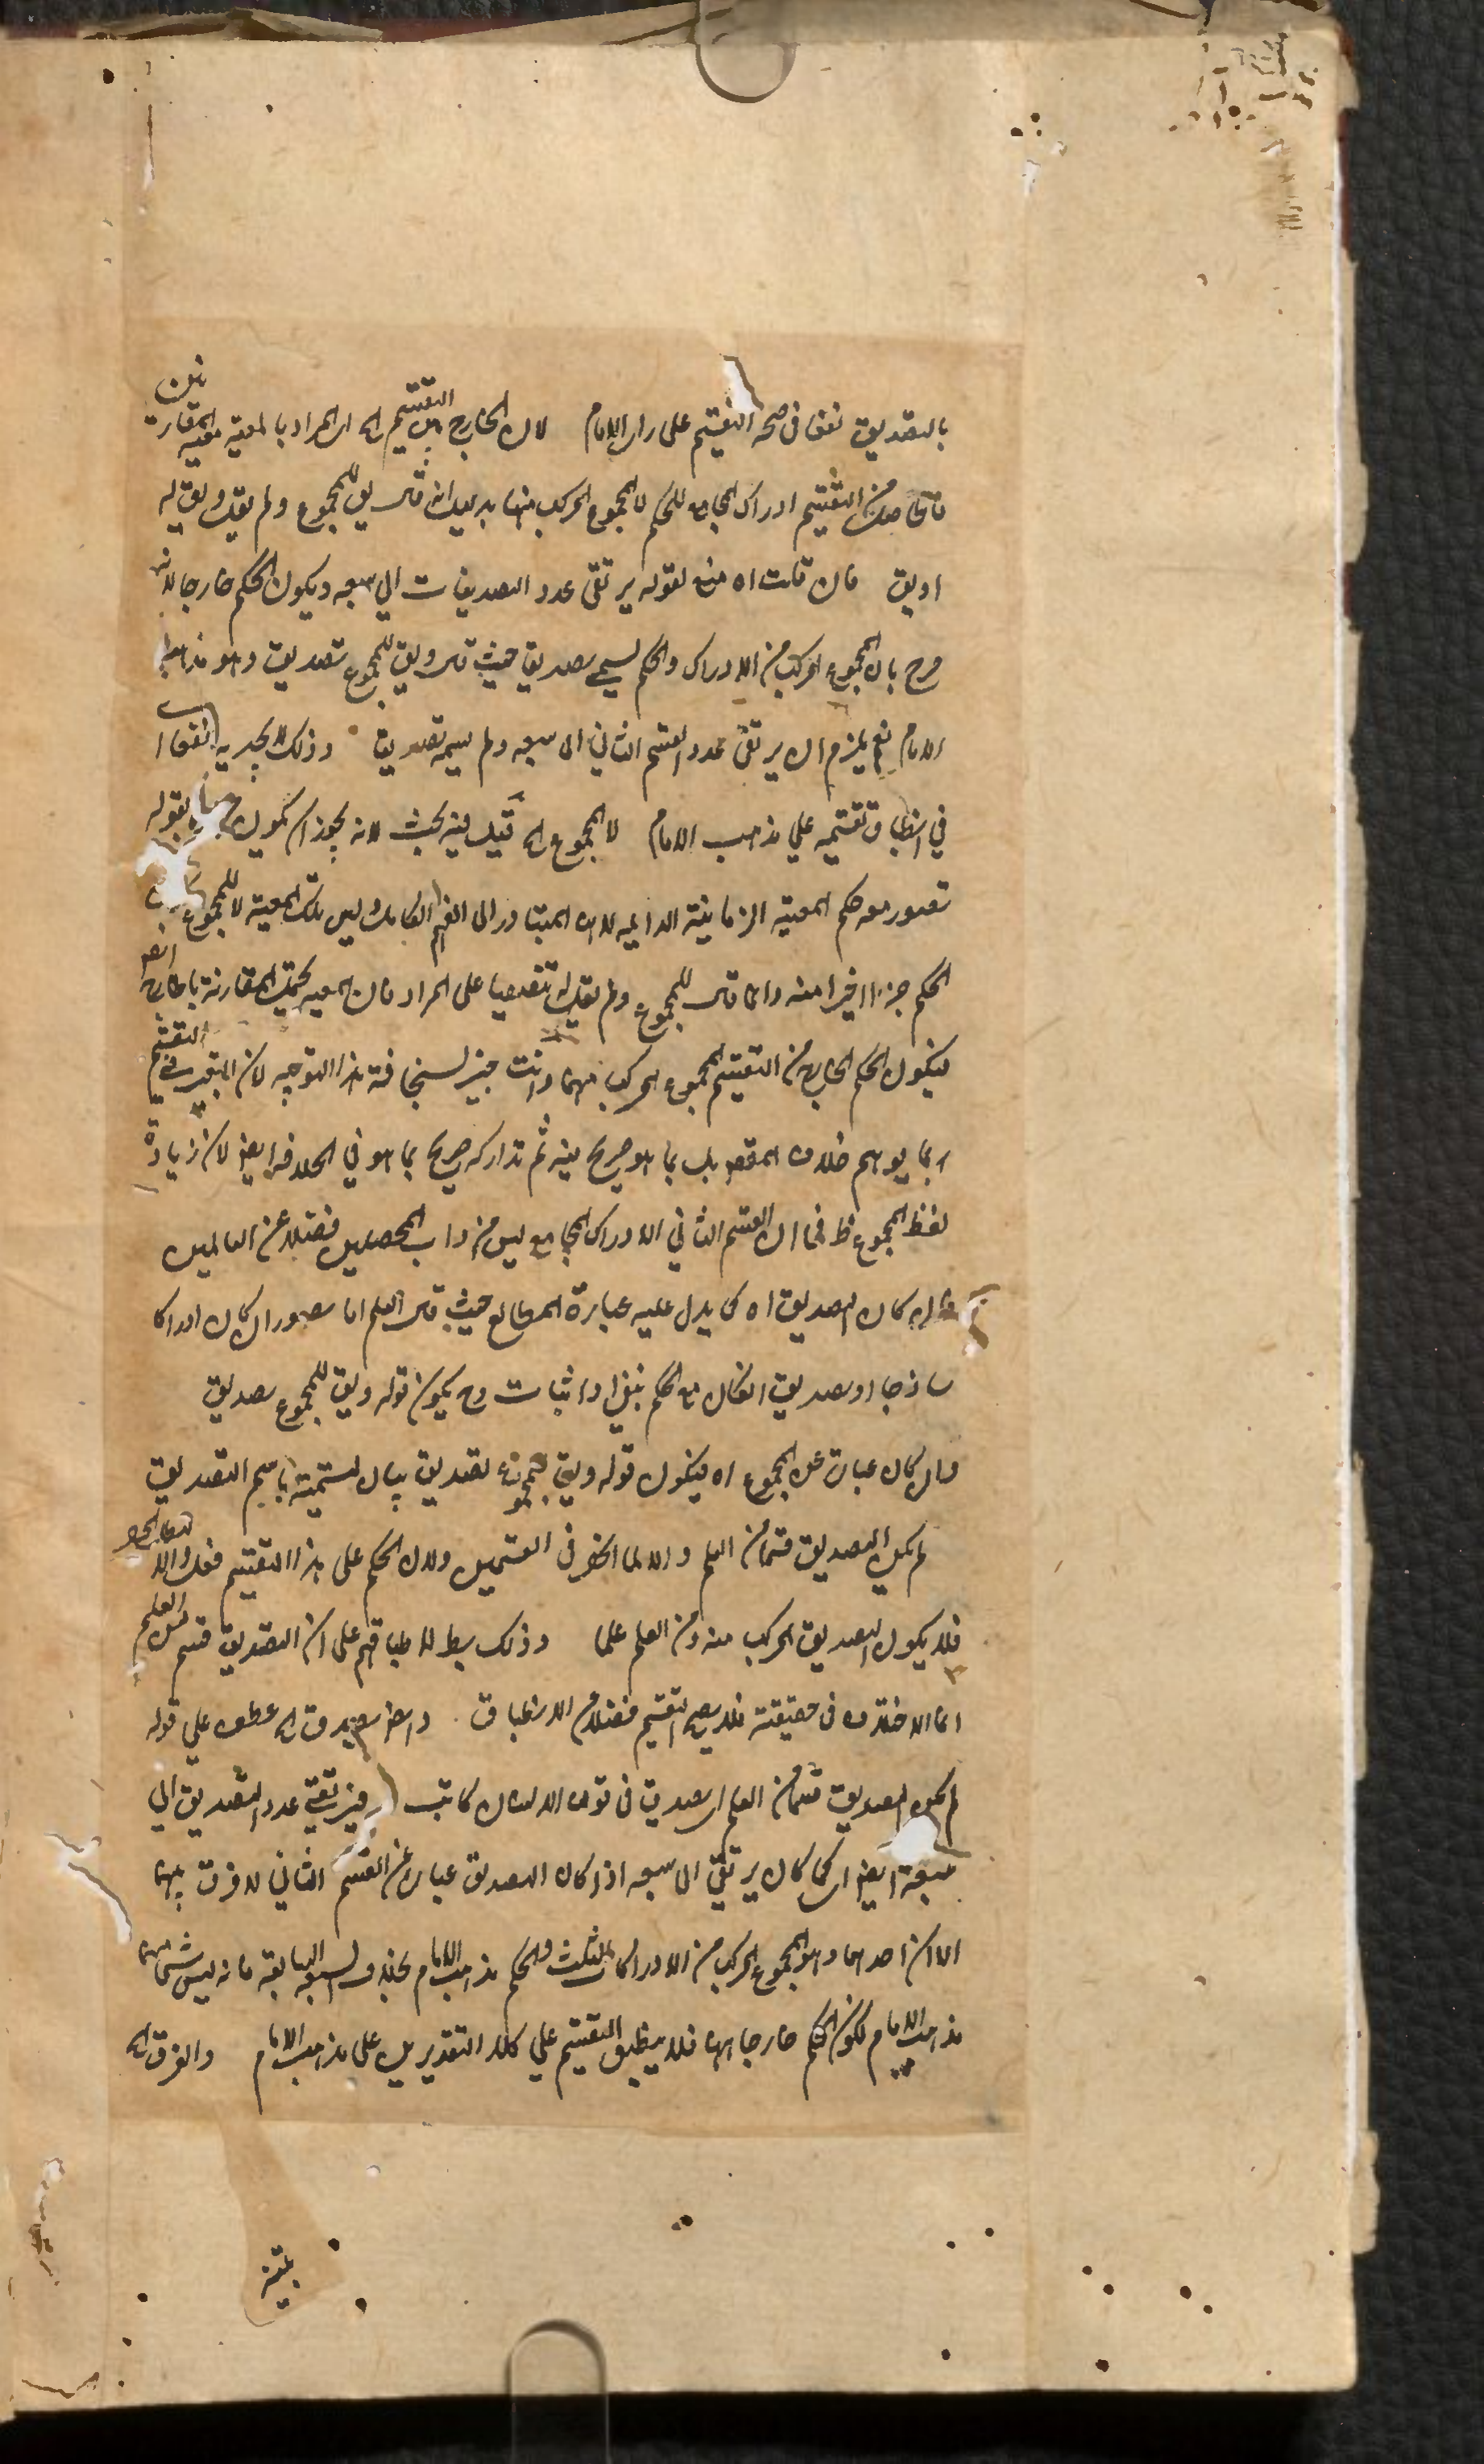 بالتصديق نفعا في صحة التقسيم على راى الامام لان الخارج من التقسيم اه اى المراد بالمعية معية المقارنة
فالحاصل من التقسيم ادراك المجامع للحكم لا المجموع المركب منهما بدليل انه قال يق للمجموع ولم يقل ويق له
او يق فان قلت اه منع لقوله يرتقى عدد التصديقات الى سبعه ويكون الحكم خارجا لانه
صرح بان المجموع المركب من الادراك والحكم يسمى تصديقا حيث قال ويق للمجموع تصديق وهو مذهب
الامام نعم يلزم ان يرتقى عدد القسم الثاني الى سبعه ولم يسمه تصديقا وذلك لا يجديه نفعا
في انطباق تقسيمه علي مذهب الامام لا المجموع اه قيل فيه بحث لانه يجوز ان يكون بقوله
تصور معه حكم المعية الزمانية الدائميه لانه المتبادر الى الفهم الكامل وليس تلك المعية الا للمجموع
الحكم جزءا اخيرا منه وانما قال للمجموع ولم يقل له تنصيصا على المراد فان المعيه يحتمل المقارنة
فيكون الحكم الخارج من التقسيم المجموع المركب منهما وانت خبير بسخافة هذا التوجيه لان التعبير في التقسيم
بما يوهم خلاف المقصود بل بما هو صريح فيه ثم تداركه صريح بما هو في الخلافه ايضا لان زيادة
لفظ المجموع ظ في ان القسم الثاني الادراك المجامع ليس من داب المحصلين فضلا عن العالمين
ان كان التصديق اه كما يدل عليه عبارة المطالع حيث قال العلم اما تصور ان كان ادراكا
ساذجا او تصديق ان كان مع الحكم بنفي او اثبات وح يكون قوله ويق للمجموع تصديق
وان كان عبارة عن المجموع اه فيكون قوله ويق للمجموع تصديق بيان لتسميته باسم التصديق
لم يكن التصديق قسما من العلم والا لما انحصر في القسمين ولان الحكم على هذا التقسيم فعل والا
فلا يكون التصديق المركب منه ومن العلم علما وذلك بط لاطباقهم على ان التصديق قسم من العلم
انما الاختلاف في حقيقته فلا يصح التقسيم فضلا من الانطباق وايضا يصدق اه عطف علي قوله
لم يكن التصديق قسما من العلم اى يصدق في قولنا الانسان كاتب فيرتقي عدد التصديق الي
سبعة ايضا اى كما كان يرتقي الى سبعه اذا كان التصديق عبارة عن القسم الثاني لا فرق بينهما
الا ان احدهما وهو المجموع المركب من الادراكات الثلث والحكم مذهب الامام بخلاف السبعه السابقة فانه ليس شى منهما
مذهب الامام لكون الحكم خارجا عنها فلا ينطبق التقسيم علي كلا التقديرين على مذهب الامام والفرق اه